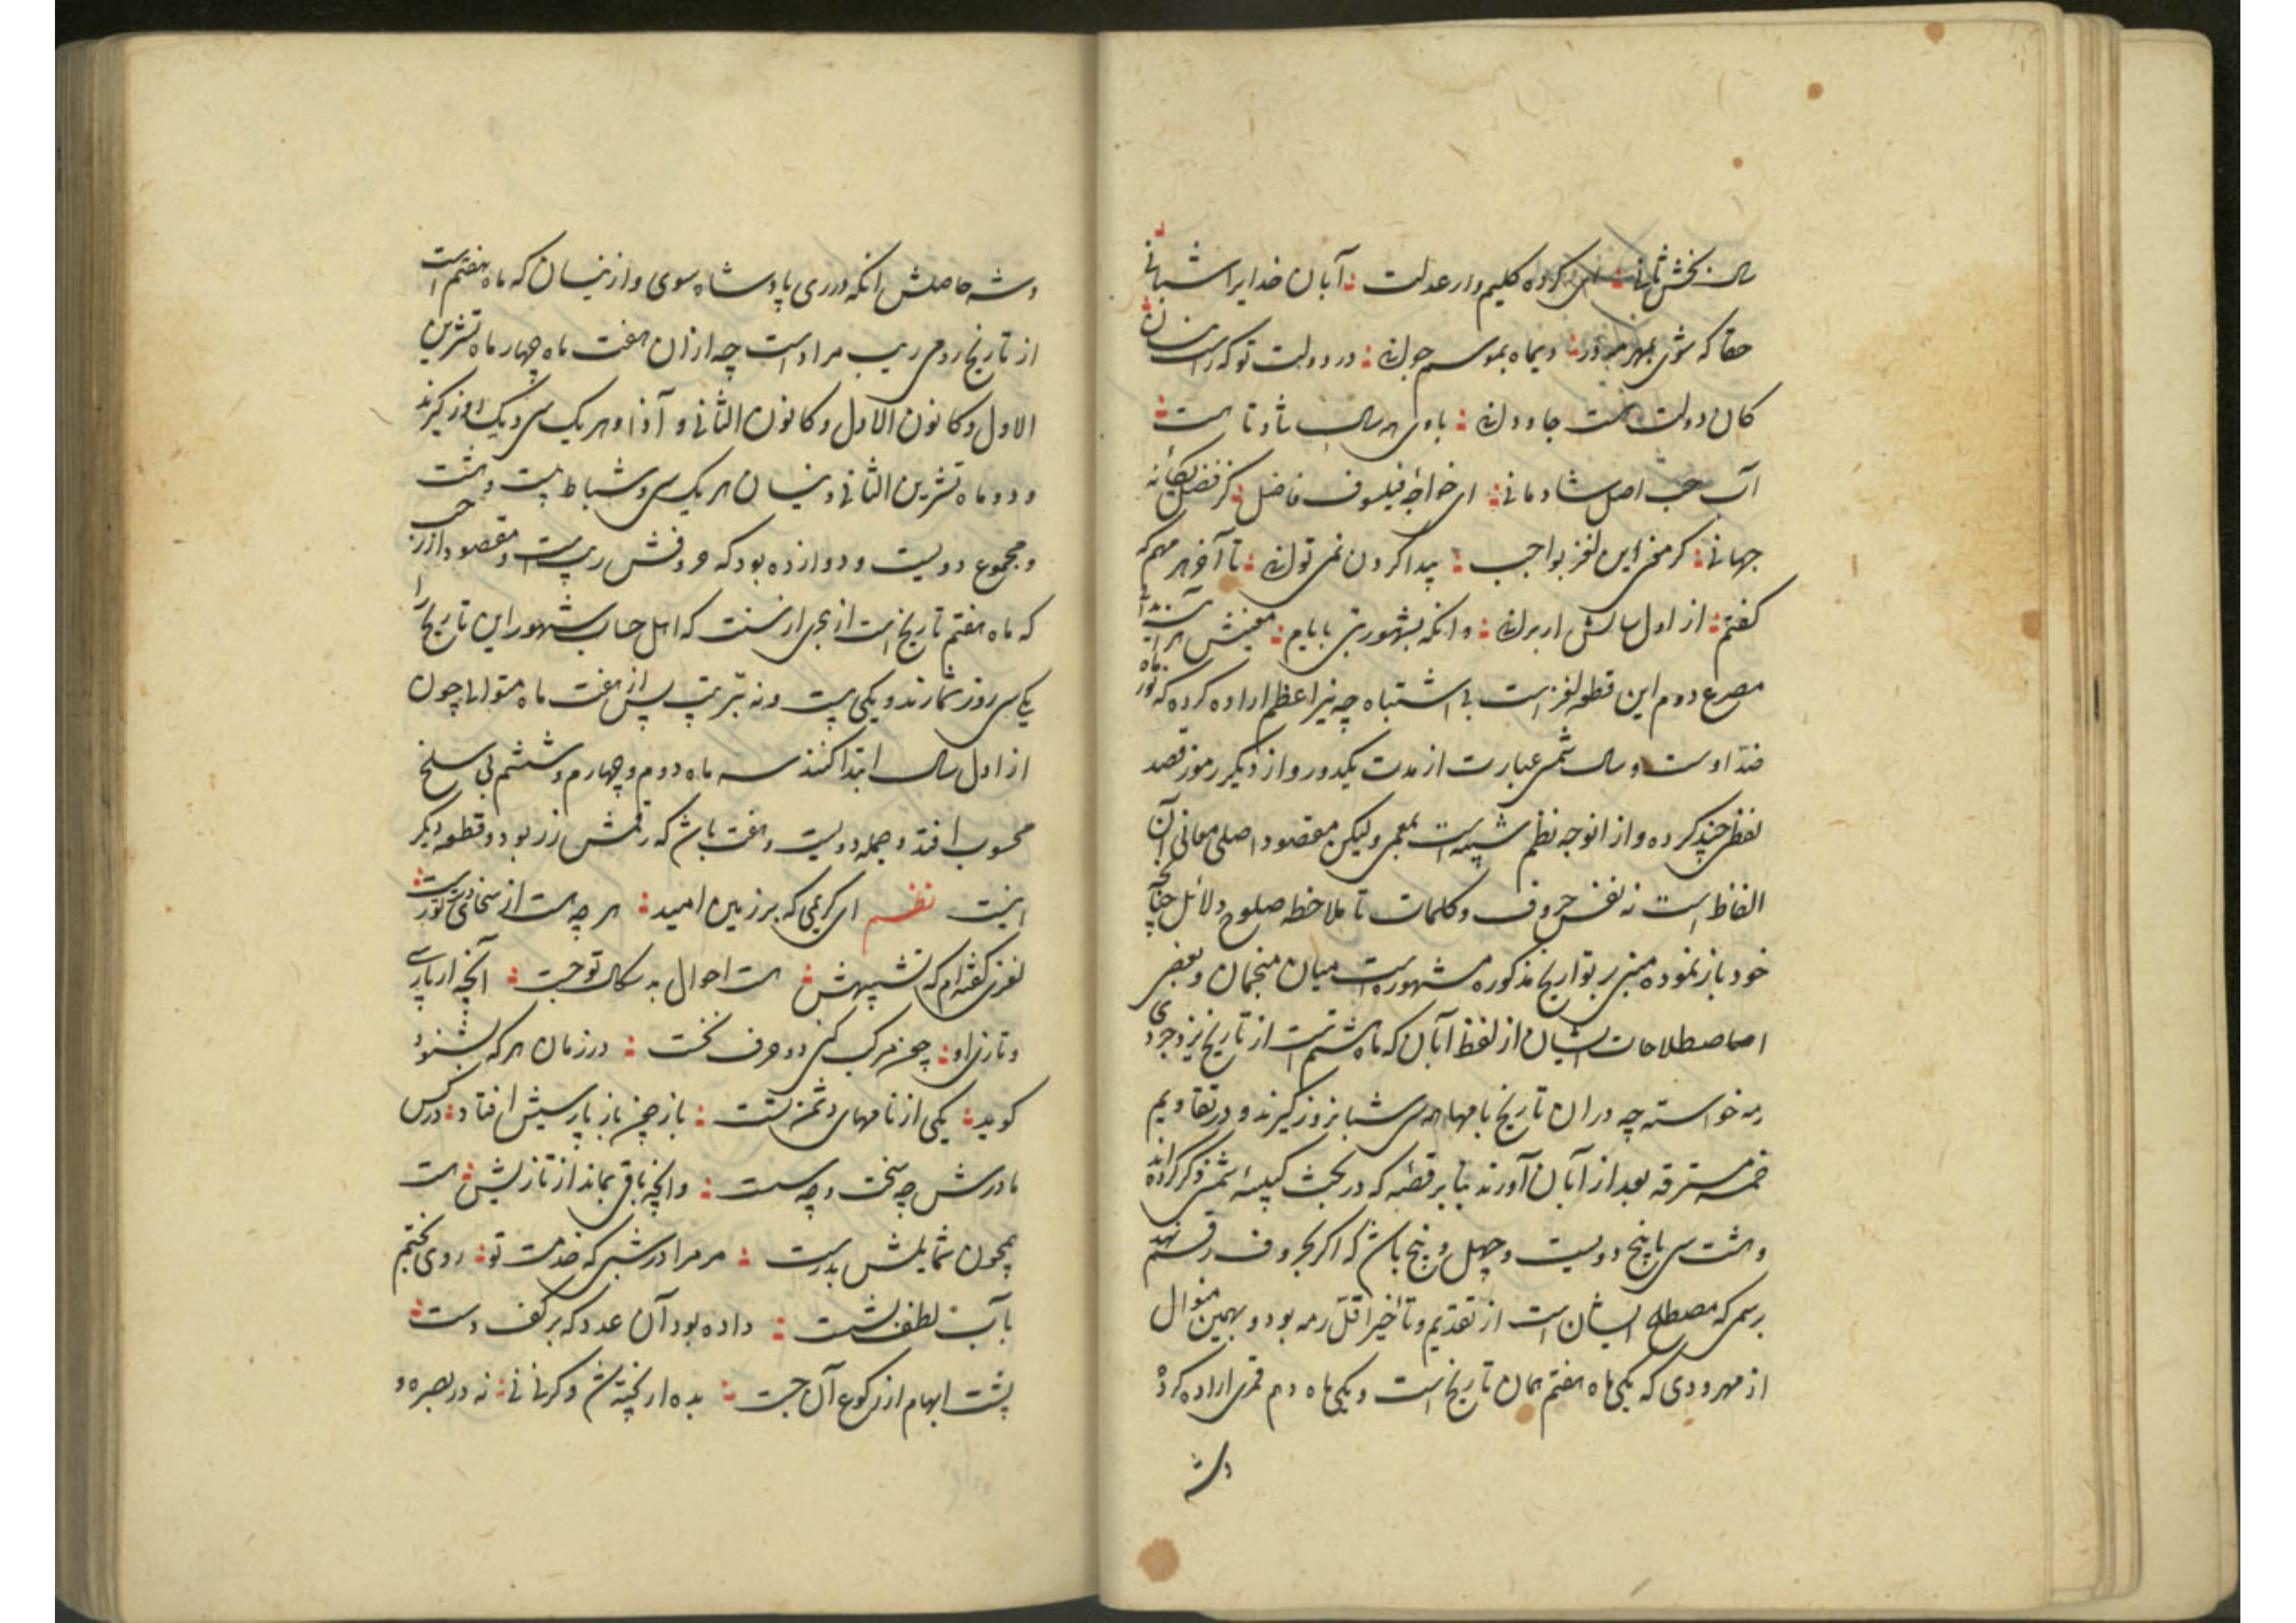 سال بخش ثانی کرده کلیم وار عدلت آبان خدایرا شبانی
حقا که شوی بمهر دیماه بموسم جوانی در دولت تو که راست
کان دولت هست جاودانی بادی همه سال شاد تا هست
اصل شادمانی ای خواجه فیلسوف فاضل کز فضل یگانه
جهانی گر مخفی این لغز بواجب پیدا کردن نمی توانی تا آخر هر مهم که
گفتم از اول سالش ار برانی وانگه بشهور بی بایام
مصرع دوم این قطعه لغز است بی اشتباه چه نیر اعظم اراده کرده که نور ماه
ضد اوست و سال شمس عبارت از مدت یکدور و از دیگر رموز قصد
لفظی چند کرده و از انوجه نظم شبیه است بمعمی ولیکن مقصود اصلی معانی آن
الفاظ است نه نفس حروف و کلمات تا ملاحظه صلوح و دلائل چنانچه
خود باز نموده مبنی بر تواریخ مذکوره مشهوره است میان منجمان و بعضی
اصطلاحات ایشان از لفظ آبان که ماه هشتم است از تاریخ یزدجردی
رمه خواسته چه دران تاریخ بامهما همه سی شبانروز گیرند و در تقاویم
خمسه مسترقه بعد از آبان آورند بنابر قضیه که در بحث کبیسه شمسی ذکر کرده اند
و هشت سی با پنج دویست و چهل و پنج باشد که اگر بحروف رقم نهند
برسمی که مصطلح ایشان است از تقدیم و تأخیر اقل رمه بود و بهمین منوال
از مهر و دی که یکی ماه هفتم همان تاریخ است و یکی ماه دهم قمری اراده کرد
دشه
دشه حاصلش انکه دزدی پادشاه سوی و از نیسان که ماه هفتم است
از تاریخ رومی ریب مراد است چه ازان هفت ماه چهار ماه تشرین
الاول و کانون الاول و کانون الثانی و آذار هر یک سی و یک روز گیرند
و دو ماه تشرین الثانی و نیسان هر یک سی و شباط بیست و هشت
و مجموع دویست و دوازده بود که حروفش ریب است و مقصود از رجب
که ماه هفتم تاریخ است از هجری ارزست که اهل حساب شهور این تاریخ را
یکی سی روز شمارند و یکی بیست و نه بترتیب پس از هفت ماه متوالی چون
از اول سال ابتدا کنند سه ماه دوم و چهارم و ششم بی سلخ
محسوب افتد و جمله دویست و هفت باشد که رقمش زر بود و قطعه دیگر
اینست نظم ای کریمی که بر زمین امید هر چه هست از سخای تو رست
لغزی گفته ام که تشبیهش هست احوال بدسکال تو جست آنچه از پارسی
و تازی او چون مرکب کنی دو حرف نخست در زمان هر که بشنود
گوید یکی از نامهای دشمن تست باز چون باز پارسیش افتاد در کس
مادرش چه سخت و چه سست وانچه باقی بماند از تازیش هست
همچون شمایلش بدرست مر مرا در شبی که خدمت تو روی بختم
بآب لطف بشست داده بود آن عدد که بر کف دست
پشت ابهام از رکوع آن جست بده ار پخته و کرنانی نه در بصره و